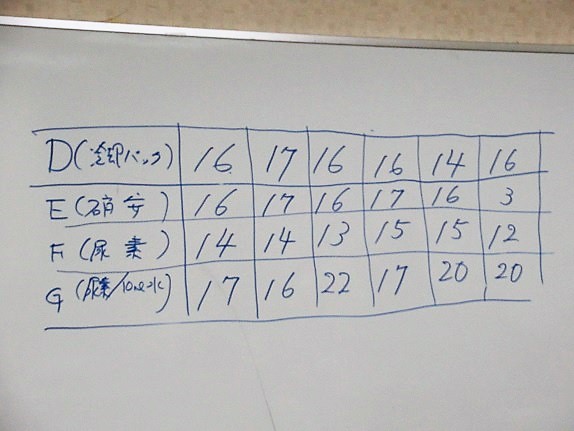 D(冷却パック) 16 17 16 16 14 16
E(硝安) 16 17 16 17 16 3
F(尿素) 14 14 13 15 15 12
G(尿素/10mℓ水) 17 16 22 17 20 20